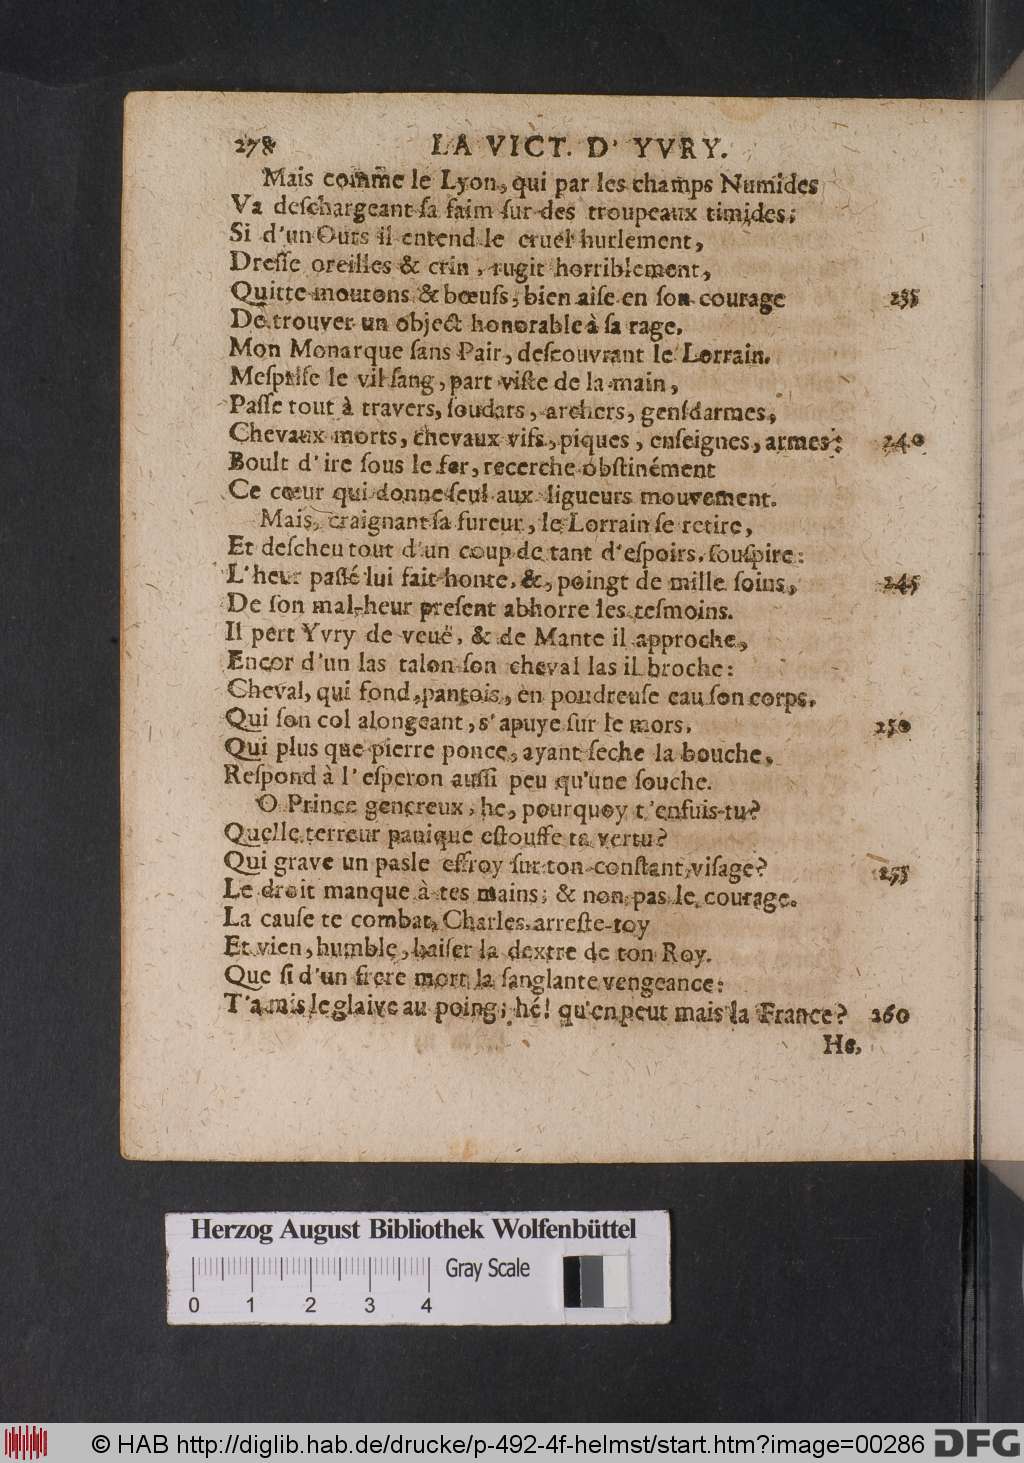 278 LA VICT. D' YVRY.
Mais comme le Lyon, qui par les champs Numides
Va deſchargeant ſa faim ſur des troupeaux timides;
Si d'un Ours il entend le cruel hurlement,
Dreſſe oreilles & crin, rugit horriblement,
Quitte moutons & bœufs, bien aiſe en ſon courage 235
De trouver un object honorable à ſa rage.
Mon Monarque ſans Pair, deſcouvrant le Lorrain.
Meſpriſe le vil ſang, part viſte de la main,
Paſſe tout à travers, ſoudars, archers, genſdarmes,
Chevaux morts, chevaux vifs, piques, enſeignes, armes: 240
Boult d'ire ſous le fer, recerche obſtinément
Ce cœur qui donne ſeul aux ligueurs mouvement.
Mais, craignant ſa fureur, le Lorrain ſe retire,
Et deſcheu tout d'un coup de tant d'eſpoirs, ſouſpire:
L'heur paſſé lui fait honte, &, poingt de mille ſoins, 245
De ſon mal-heur preſent abhorre les teſmoins.
Il pert Yvry de veuë, & de Mante il approche,
Encor d'un las talon ſon cheval las il broche:
Cheval, qui fond, pantois, en poudreuſe eau ſon corps,
Qui ſon col alongeant, s'apuye ſur le mors,
250
Qui plus que pierre ponce, ayant ſeche la bouche,
Reſpond à l'eſperon auſſi peu qu'une ſouche.
O Prince genereux, he, pourquoy t'enfuis-tu?
Quelle terreur panique eſtouffe ta vertu?
Qui grave un paſle effroy ſur ton conſtant viſage? 255
Le droit manque à tes mains; & non pas le courage.
La cauſe te combat, Charles, arreſte-toy
Et vien, humble, baiſer la dextre de ton Roy.
Que ſi d'un frere mort la ſanglante vengeance:
T'a mis le glaive au poing; hé! qu'en peut mais la France? 260
He,
Herzog August Bibliothek Wolfenbüttel
Gray Scale
0 1 2 3 4
© HAB http://diglib.hab.de/drucke/p-492-4f-helmst/start.htm?image=00286 DFG